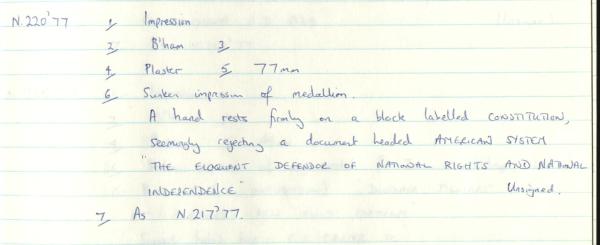 N.220'77 1/ Impression
2/ B'ham 3/
4/ Plaster 5/ 77mm
6/ Sunken impression of medallion.
A hand rests firmly on a block labelled CONSTITUTION,
seemingly rejecting a document headed AMERICAN SYSTEM
"THE ELOQUENT DEFENDOR OF NATIONAL RIGHTS AND NATIONAL
INDEPENDENCE" Unsigned.
7/ As N.217'77.